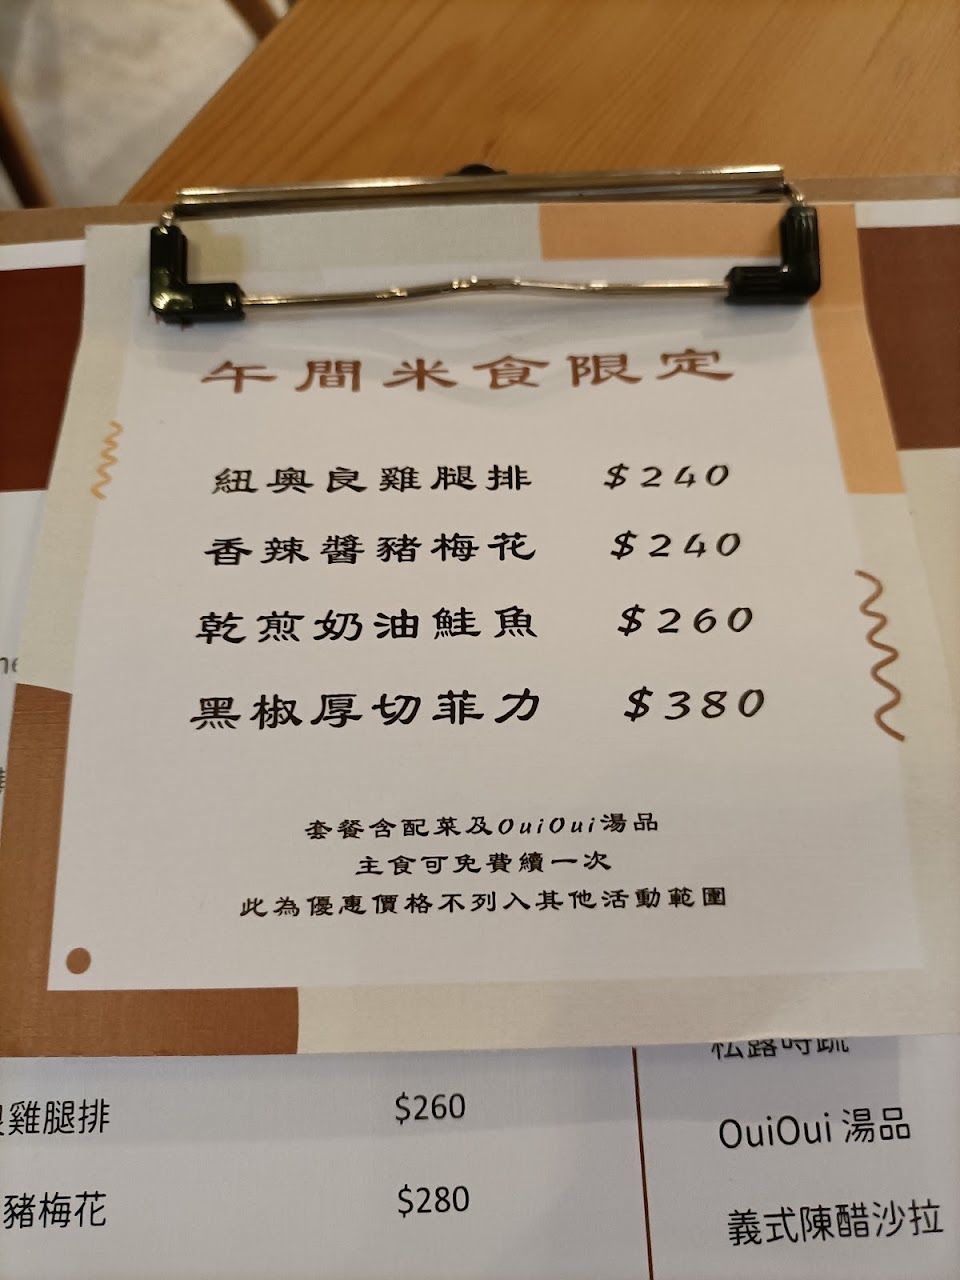 午間米食限定
紐奧良雞腿排 $240
香辣醬豬梅花 $240
乾煎奶油鮭魚 $260
黑椒厚切菲力 $380
套餐含配菜及OuiOui湯品
主食可免費續一次
此為優惠價格不列入其他活動範圍
松露時蔬
雞腿排 $260
OuiOui 湯品
豬梅花 $280
義式陳醋沙拉